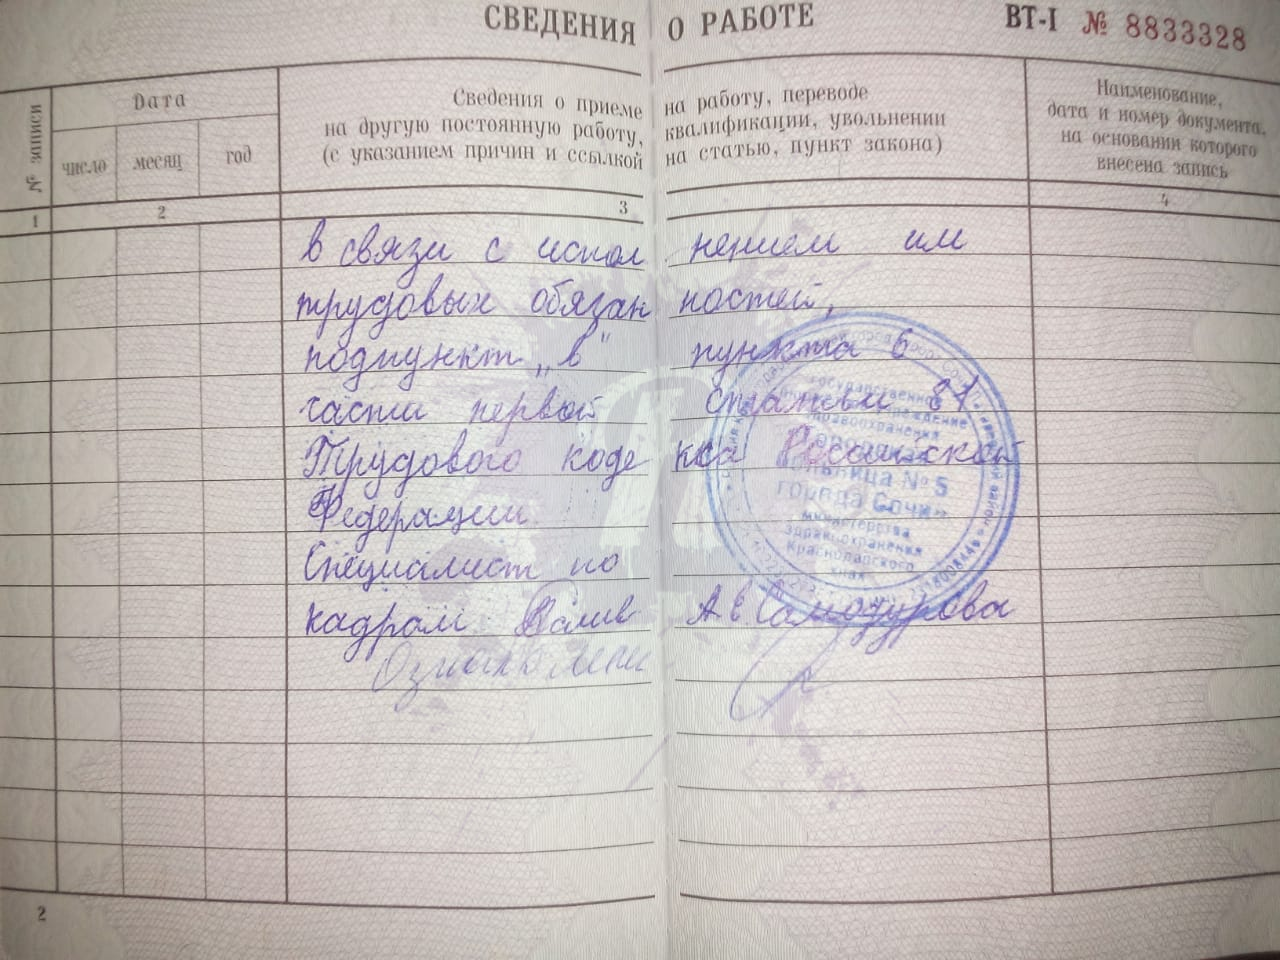 СВЕДЕНИЯ О РАБОТЕ
ВТ-I № 8833328
№ записи
Дата
число
месяц
год
Сведения о приеме на работу, переводе
на другую постоянную работу, квалификации, увольнении
(с указанием причин и ссылкой на статью, пункт закона)
Наименование,
дата и номер документа,
на основании которого
внесена запись
1 2 3 4
в связи с исполнением им
трудовых обязанностей,
подпункт „в" пункта 6
части первой статьи 81
Трудового кодекса Российской
Федерации
Специалист по
кадрам А в Самодурова
Ознакомлен
государственное
учреждение
здравоохранения
городская
больница № 5
города Сочи»
министерства
здравоохранения
Краснодарского
края
2